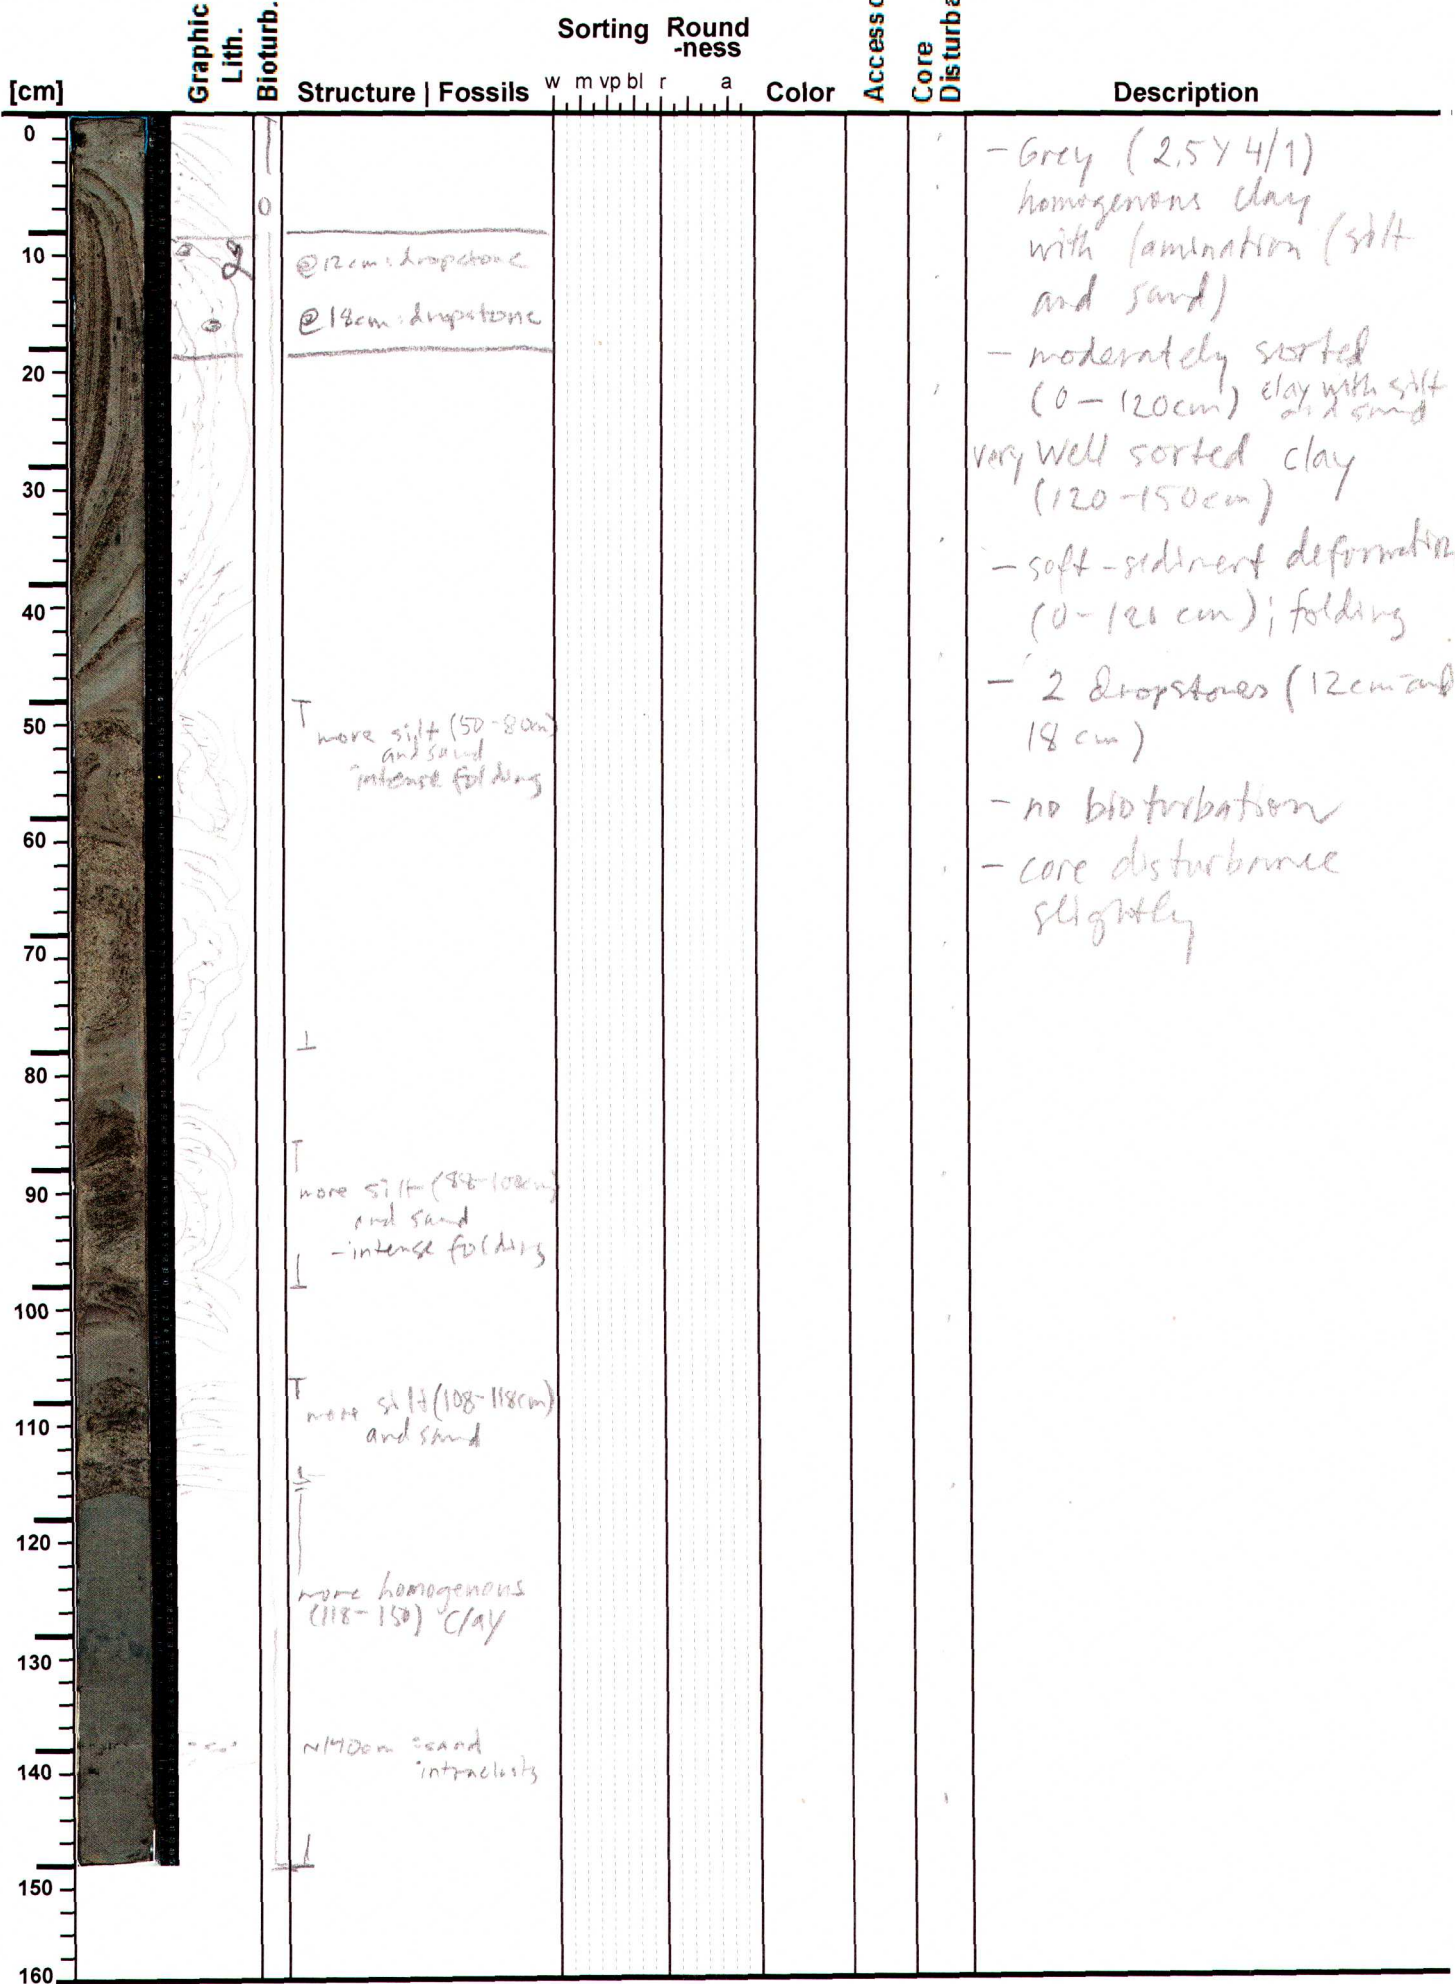 Graphic
Lith.
Bioturb.
Sorting
Round
-ness
Core
[cm]
Structure | Fossils
w m vp bl r a
Color
Description
0
10
20
30
40
50
60
70
80
90
100
110
120
130
140
150
160
0
@12cm: dropstone
@18cm: dropstone
more silt (50-80cm)
and sand
intense folding
more silt
and sand
-intense folding
more silt (108-118cm)
and sand
more homogenous
(118-150) clay
~140cm: sand
intraclasts
- Grey (2.5Y 4/1)
homogenous clay
with lamination (silt
and sand)
- moderately sorted
(0-120cm) clay with silt
and sand
very well sorted clay
(120-150cm)
- soft-sediment deformation
(0-120 cm); folding
- 2 dropstones (12cm and
18 cm)
- no bioturbation
- core disturbance
slightly